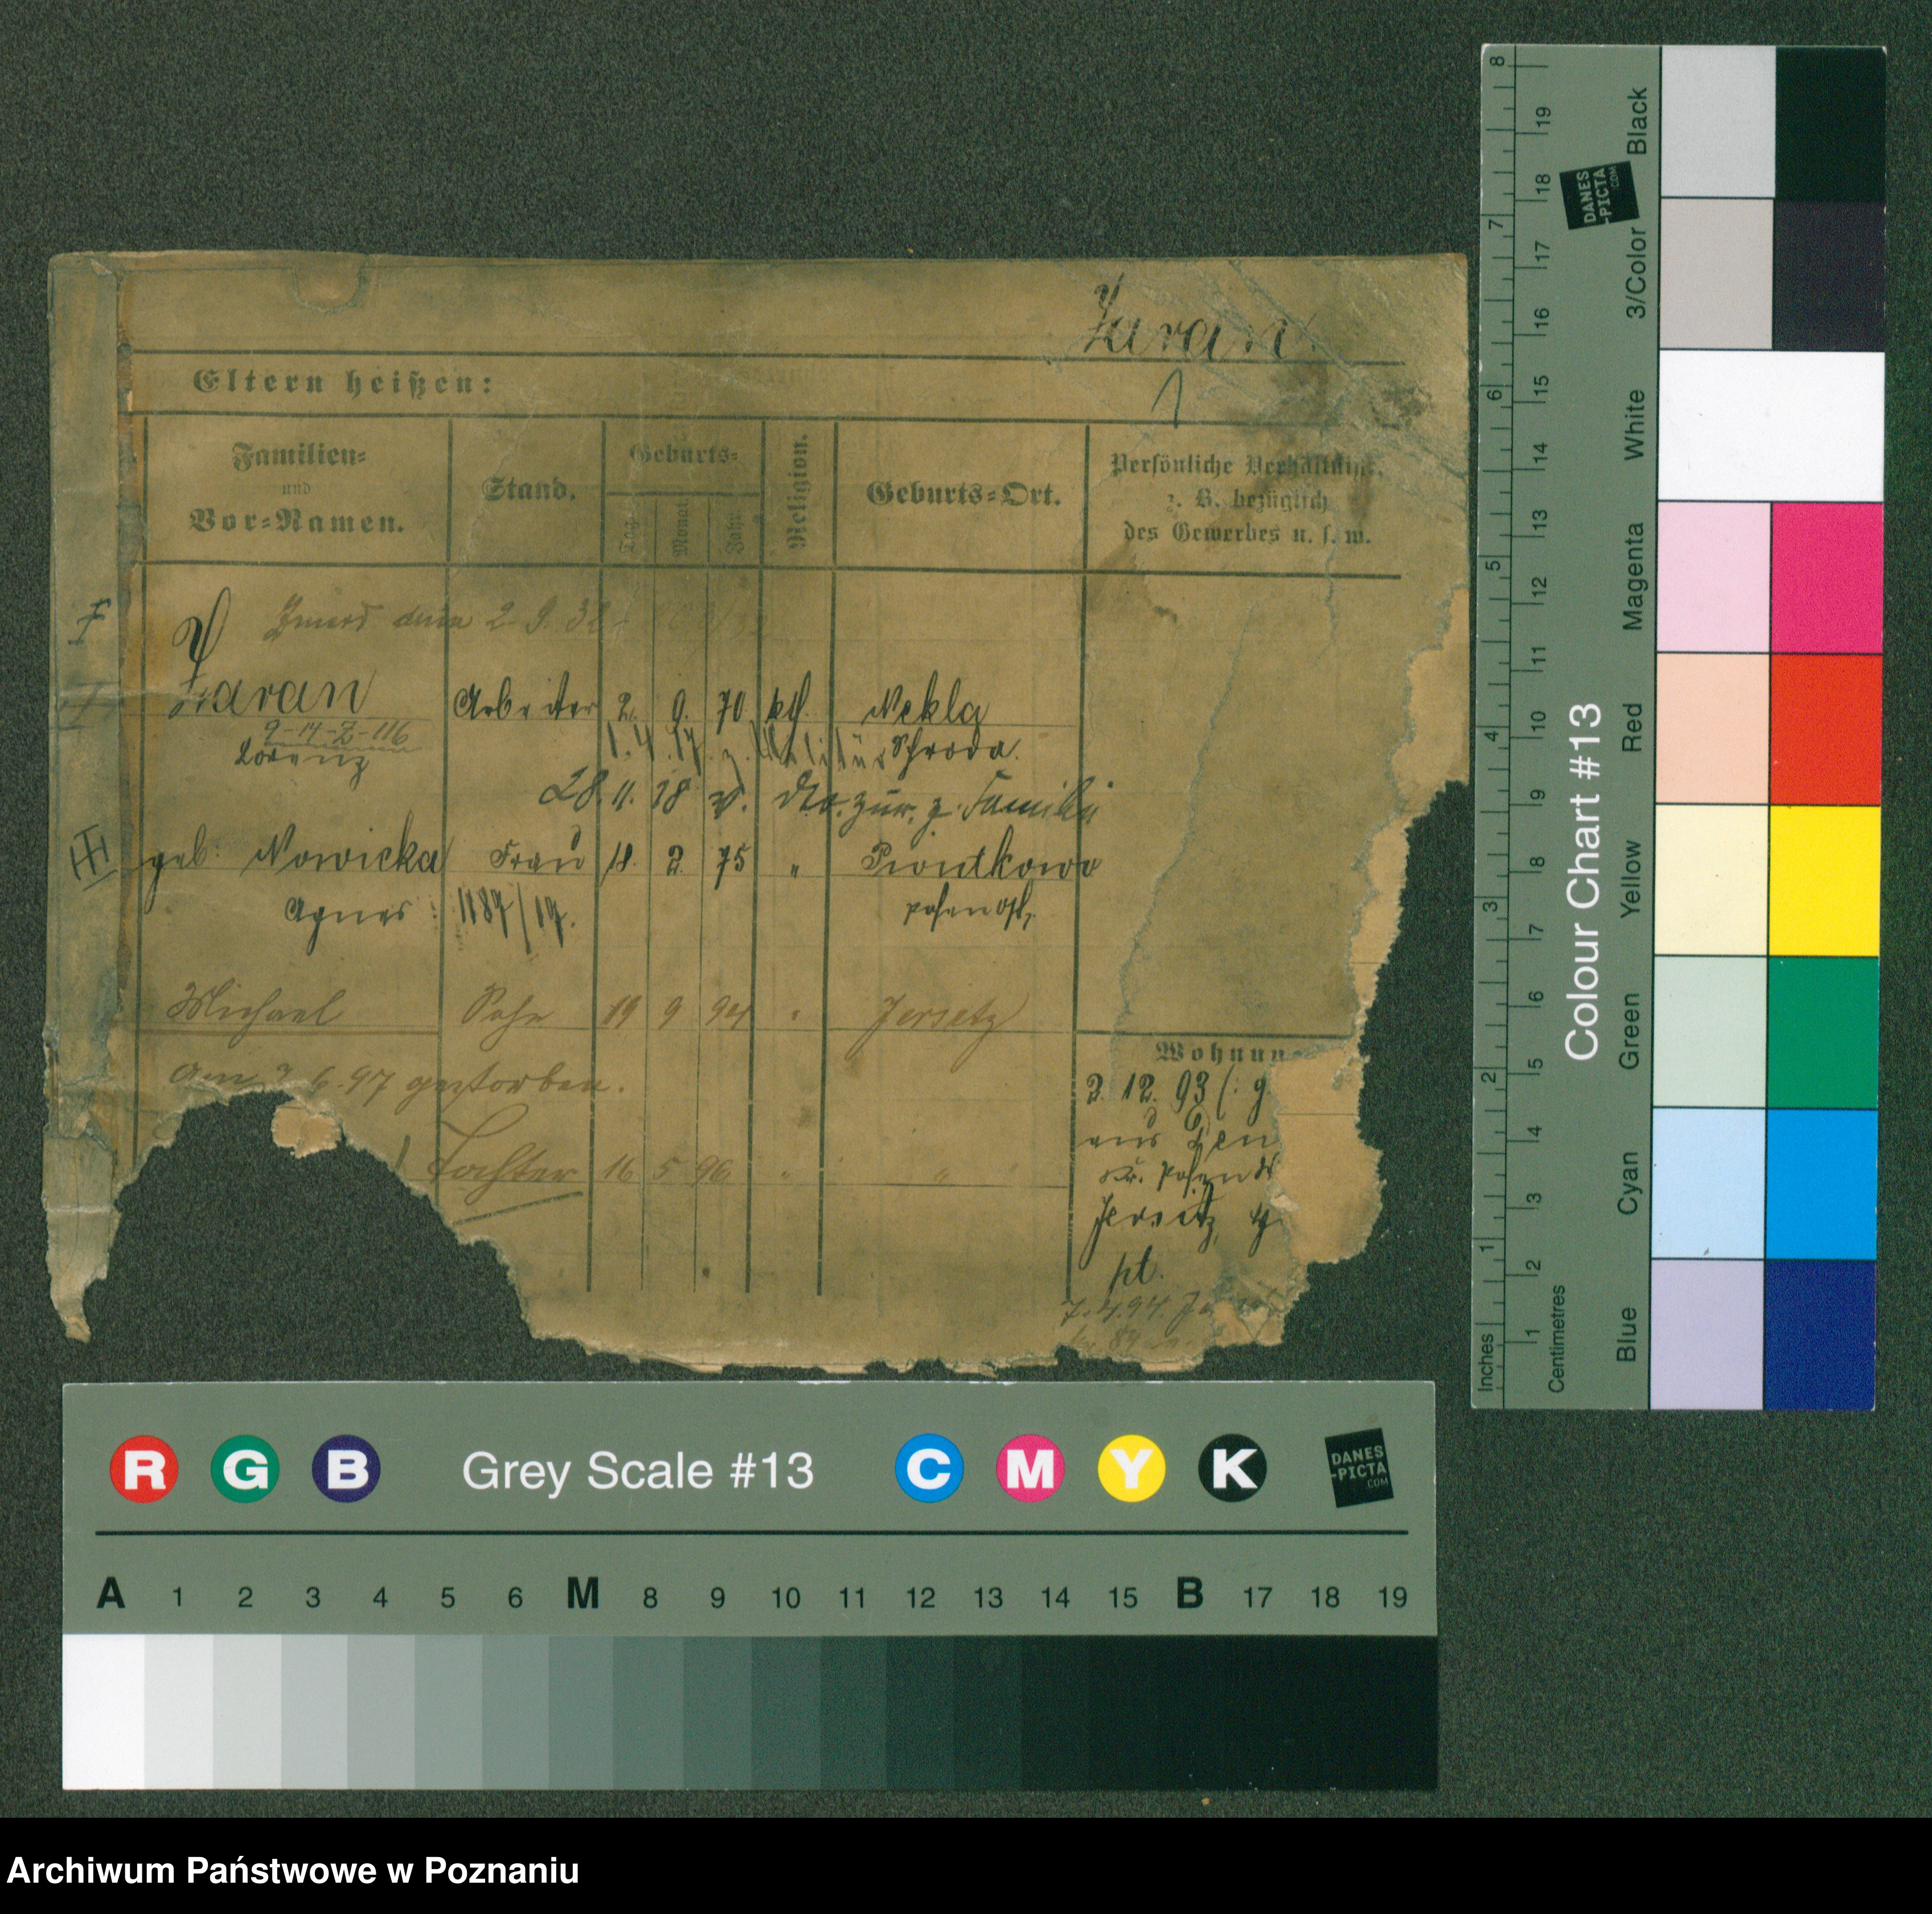 Żaran.
1
Eltern heißen:
Familien-
und
Vor-Namen.
Stand.
Geburts-
Tag
Monat
Jahr
Religion.
Geburts-Ort.
Persönliche Verhältnisse,
z. B. bezüglich
des Gewerbes u. s. w.
Zmarł dnia 2.9.32
Żaran Arbeiter 2. 9. 70 ktl. Nekla
9-14-Z-116
Lorenz
1.4.17. z. Militär Schroda.
28. 11. 18 v. Mil. zur. z. Familie
geb. Nowicka Frau 18. 2. 75 " Piontkowo
Agnes 1187/19. Posen Ost,
Michael Sohn 19 9 94 " Jersetz
am 6.97 gestorben.
Tochter 16 5 96 " "
Wohnun
2. 12. 93 (: g
aus Gon
Kr. Posen O
Jersitz,
pt.
7.4.94. Je
84
Colour Chart #13
Blue Cyan Green Yellow Red Magenta White 3/Color Black
Inches 1 2 3 4 5 6 7 8
Centimetres 1 2 3 4 5 6 7 8 9 10 11 12 13 14 15 16 17 18 19
DANES
-PICTA
.COM
R G B Grey Scale #13 C M Y K
DANES
-PICTA
.COM
A 1 2 3 4 5 6 M 8 9 10 11 12 13 14 15 B 17 18 19
Archiwum Państwowe w Poznaniu